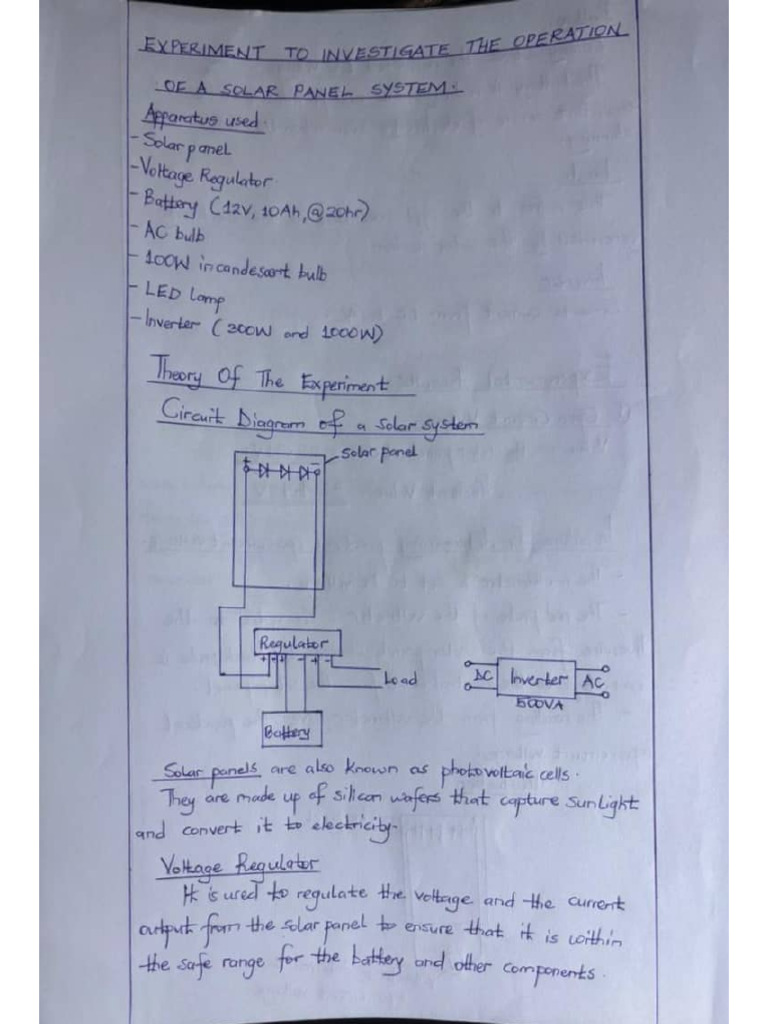 EXPERIMENT TO INVESTIGATE THE OPERATION
OF A SOLAR PANEL SYSTEM.
Apparatus used.
- Solar panel
- Voltage Regulator
- Battery (12V, 10Ah, @20hr)
- AC bulb
- 100W incandesart bulb
- LED lamp
- Inverter (300W and 1000W)
Theory Of The Experiment
Circuit Diagram of a solar system
solar panel
+ -
Regulator
+ - + - + -
Load
Battery
DC Inverter AC
500VA
Solar panels are also known as photovoltaic cells.
They are made up of silicon wafers that capture sunlight
and convert it to electricity.
Voltage Regulator
It is used to regulate the voltage and the current
output from the solar panel to ensure that it is within
the safe range for the battery and other components.